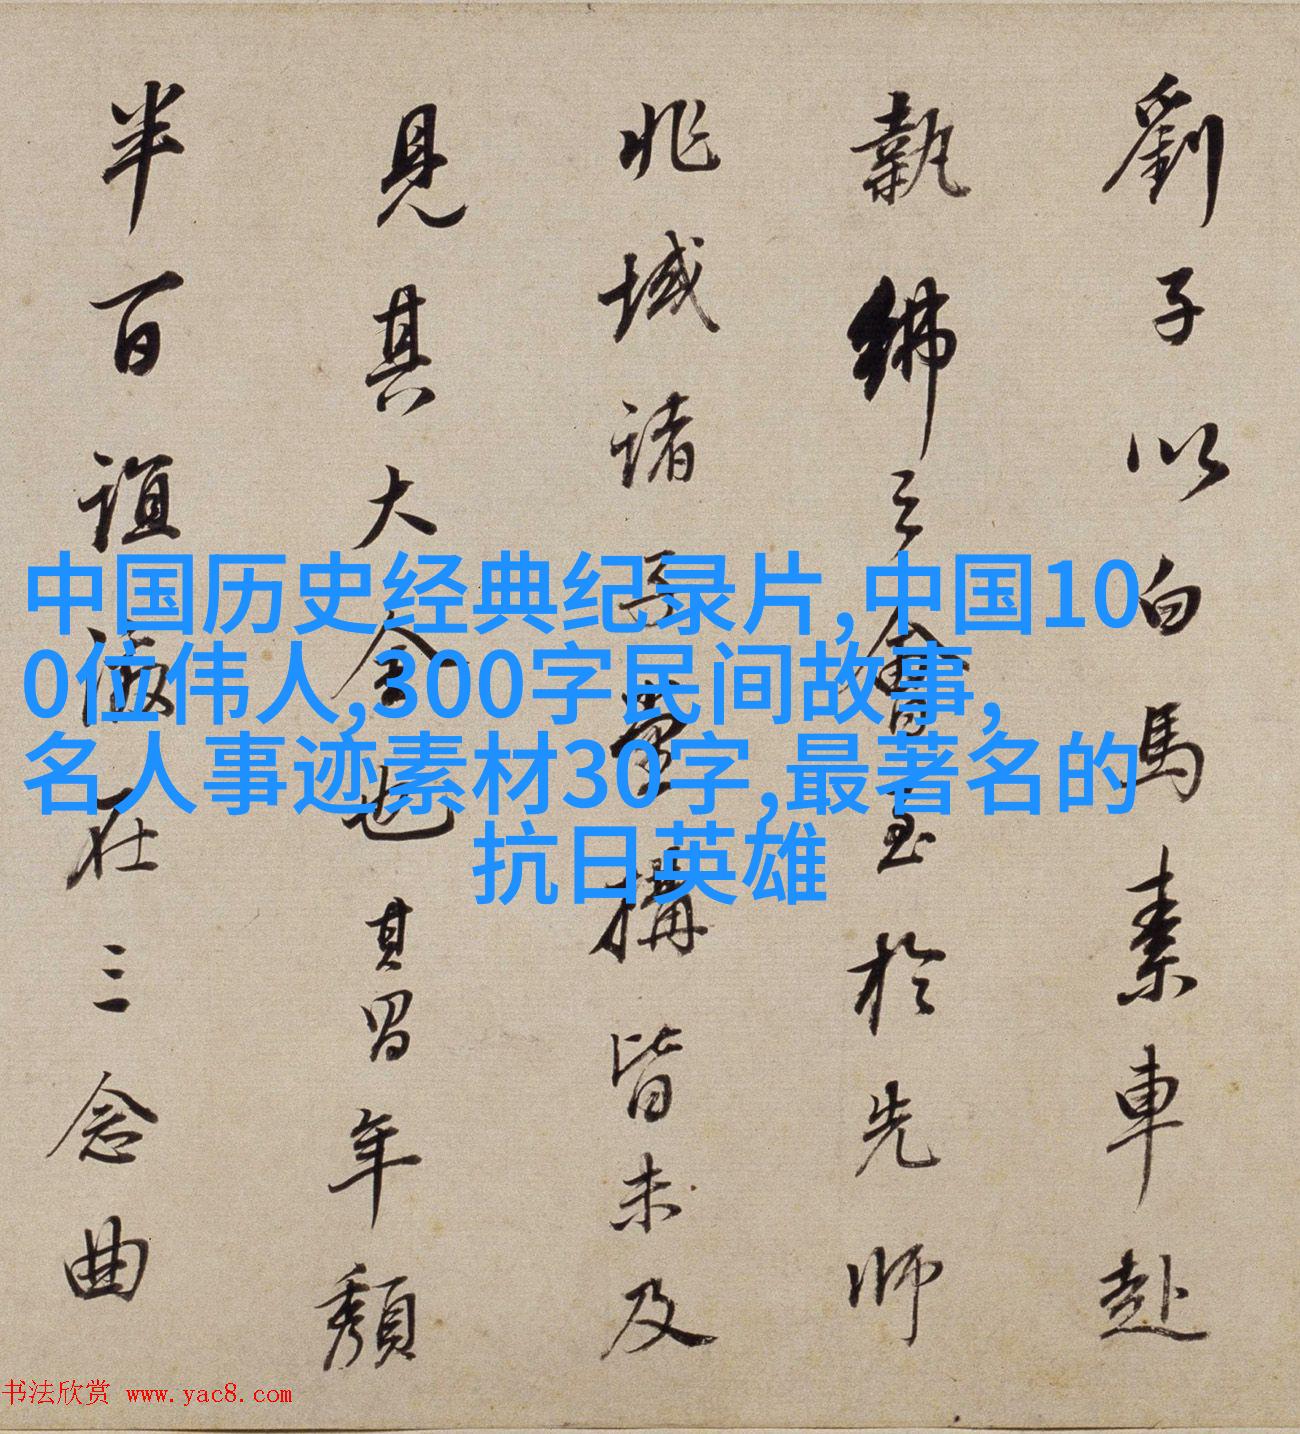 劉子以白馬素車赴
執紼之會至於先師
兆域諸子疊構皆未及
見其大全也其習年頹
半百誼激在三念曲
中国历史经典纪录片,中国10
0位伟人,300字民间故事,
名人事迹素材30字,最著名的
抗日英雄
书法欣赏 www.yac8.com